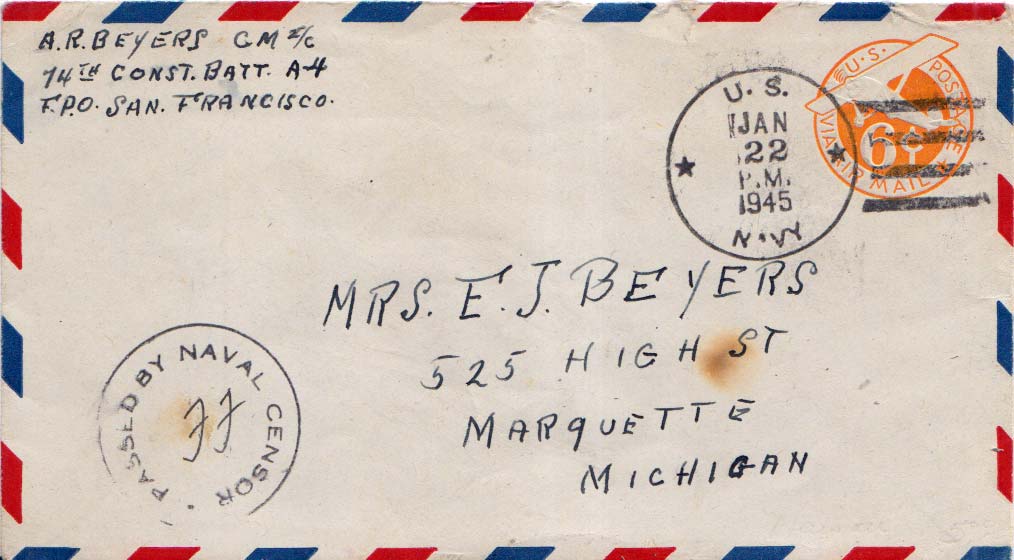 A.R. BEYERS CM 2/C
74TH CONST. BATT. A-4
F.P.O. SAN. FRANCISCO.
U. S.
JAN
22
P.M.
1945
NAVY
U.S. POSTAGE
6¢
VIA AIR MAIL
MRS. E. J. BEYERS
525 HIGH ST
MARQUETTE
MICHIGAN
PASSED BY NAVAL CENSOR